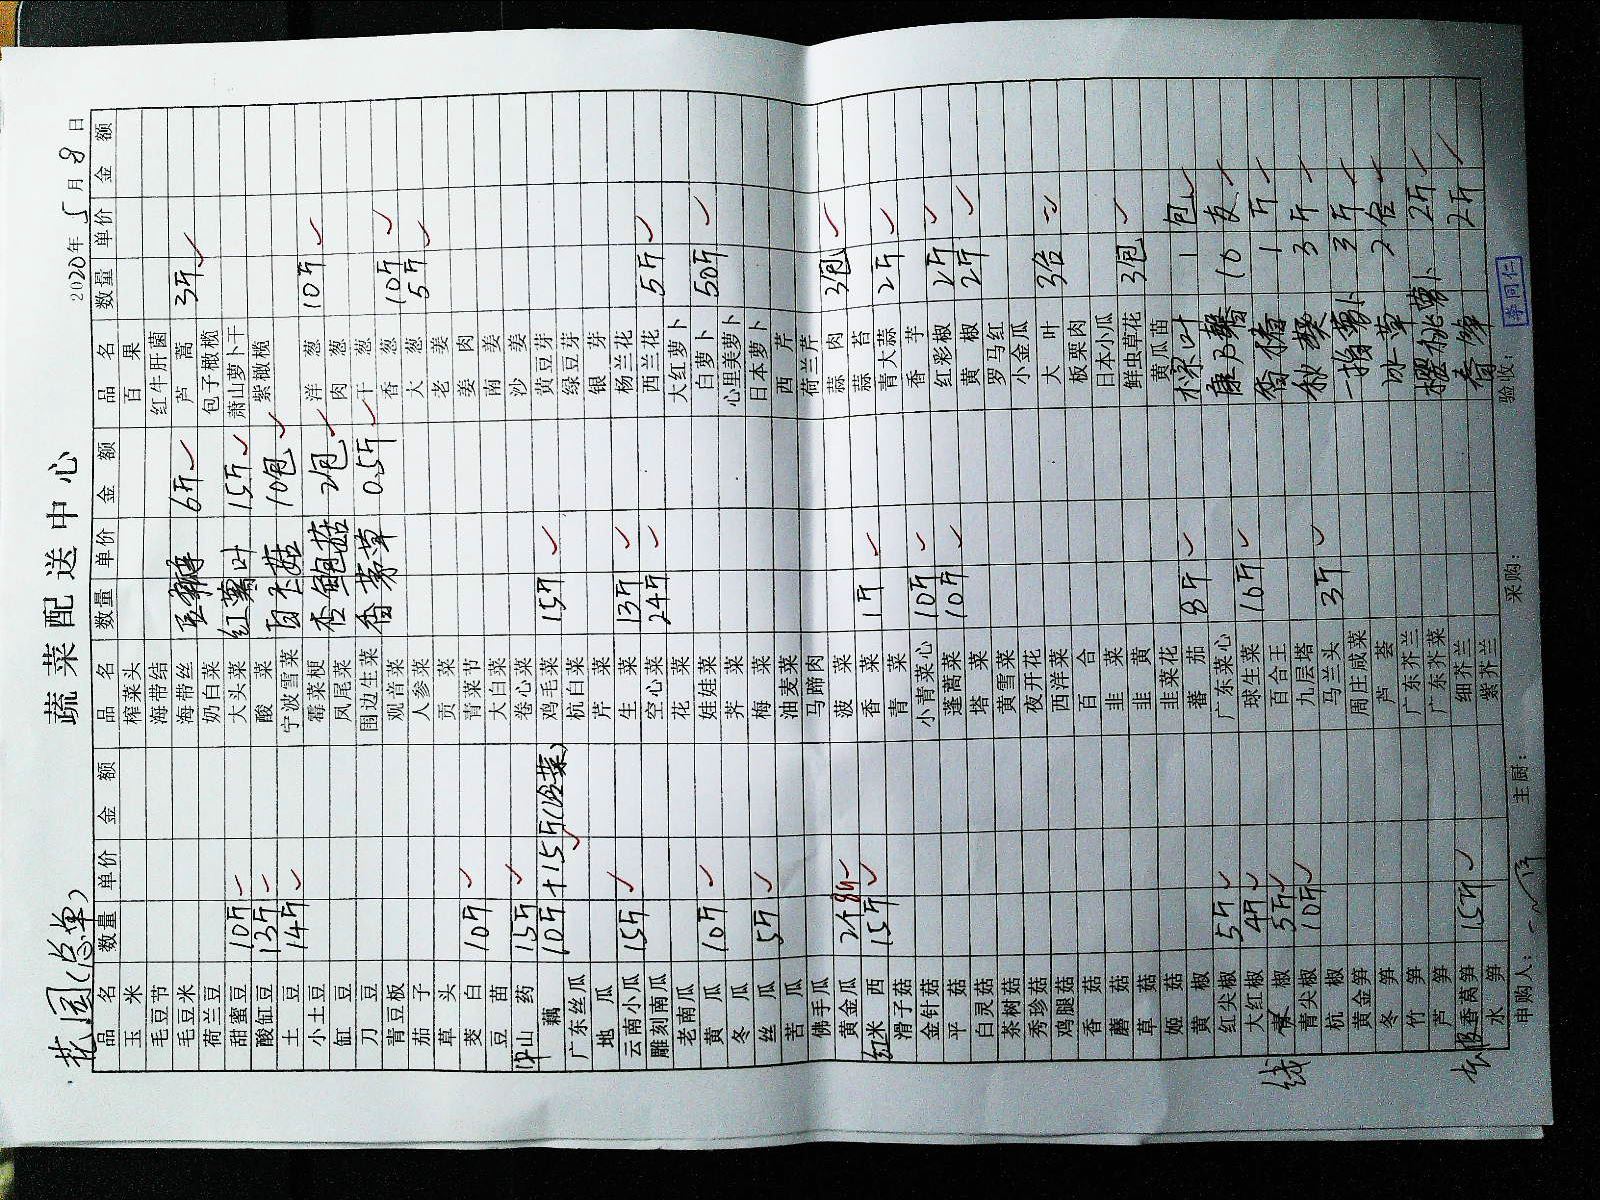 花园(总单)
蔬菜配送中心
2020年5月8日
品名 数量 单价 金额 品名 数量 单价 金额 品名 数量 单价 金额
玉米 榨菜头 百果
毛豆节 海带结 红牛肝菌
毛豆米 海带丝 豆瓣 6斤 芦蒿 3斤
荷兰豆 奶白菜 包子橄榄
甜蜜豆 10斤 大头菜 红薯叶 15斤 萧山萝卜干
酸缸豆 13斤 酸菜 白玉菇 10包 紫橄榄
土豆 14斤 宁波雪菜
小土豆 霉菜梗 杏鲍菇 2包 洋葱 10斤
缸豆 凤尾菜 肉葱
刀豆 围边生菜 香茅草 0.5斤 干葱
青豆板 观音菜 香葱 10斤
茄子 人参菜 大葱 5斤
草头 贡菜 老姜
茭白 10斤 青菜节 姜肉
豆苗 大白菜 南姜
山药 15斤 卷心菜 沙姜
藕 10斤+15斤(冷菜) 鸡毛菜 15斤 黄豆芽
广东丝瓜 杭白菜 绿豆芽
地瓜 芹菜 银芽
云南小瓜 15斤 生菜 13斤 杨兰花
雕刻南瓜 空心菜 24斤 西兰花 5斤
老南瓜 花菜 大红萝卜
黄瓜 10斤 娃娃菜 白萝卜 50斤
冬瓜 荠菜 心里美萝卜
丝瓜 5斤 梅菜 日本萝卜
苦瓜 油麦菜 西芹
佛手瓜 马蹄肉 荷兰芹
黄金瓜 2个 菠菜 蒜肉 3包
红米西 15斤 香菜 1斤 蒜苔
滑子菇 青菜 青大蒜 2斤
金针菇 小青菜心 10斤 香芋
平菇 蓬蒿菜 10斤 红彩椒 2斤
白灵菇 塔菜 黄椒 2斤
茶树菇 黄雪菜 罗马红
秀珍菇 夜开花 小金瓜
鸡腿菇 西洋菜 大叶 3合
香菇 百合 板栗肉
蘑菇 韭菜 日本小瓜
草菇 韭黄 鲜虫草花 3包
姬菇 韭菜花 黄瓜苗
黄椒 蕃茄 8斤 棕叶 1包
红尖椒 5斤 广东菜心 康乃馨 10支
大红椒 4斤 球生菜 16斤 香椿 1斤
线椒 5斤 百合王 秋葵 3斤
青尖椒 10斤 九层塔
杭椒 马兰头 3斤 一指萝卜 3斤
黄金笋 周庄咸菜 冰草 2合
冬笋 芦荟
竹笋 广东芥兰 樱桃萝卜 2斤
芦笋 广东芥菜
香莴笋 15斤 细芥兰 2斤
水笋 紫芥兰
申购人: 主厨: 采购: 验收: 李同仁